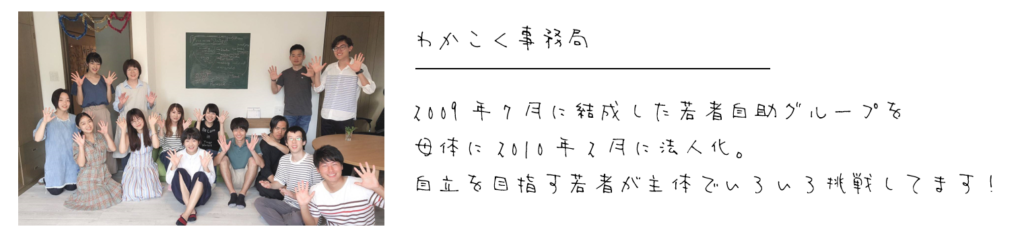 わかこく事務局
2009年7月に結成した若者自助グループを
母体に2010年2月に法人化。
自立を目指す若者が主体でいろいろ挑戦してます！